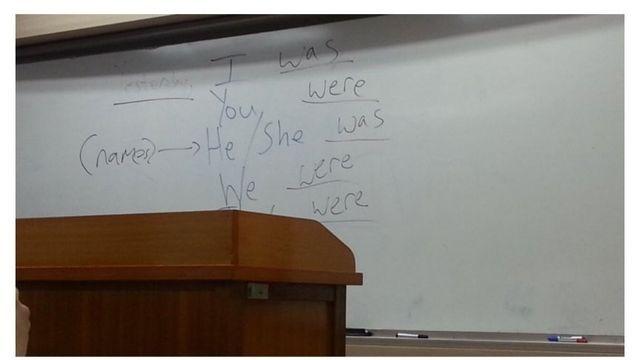 Yesterday I was
You were
(names) → He/She was
We were
were